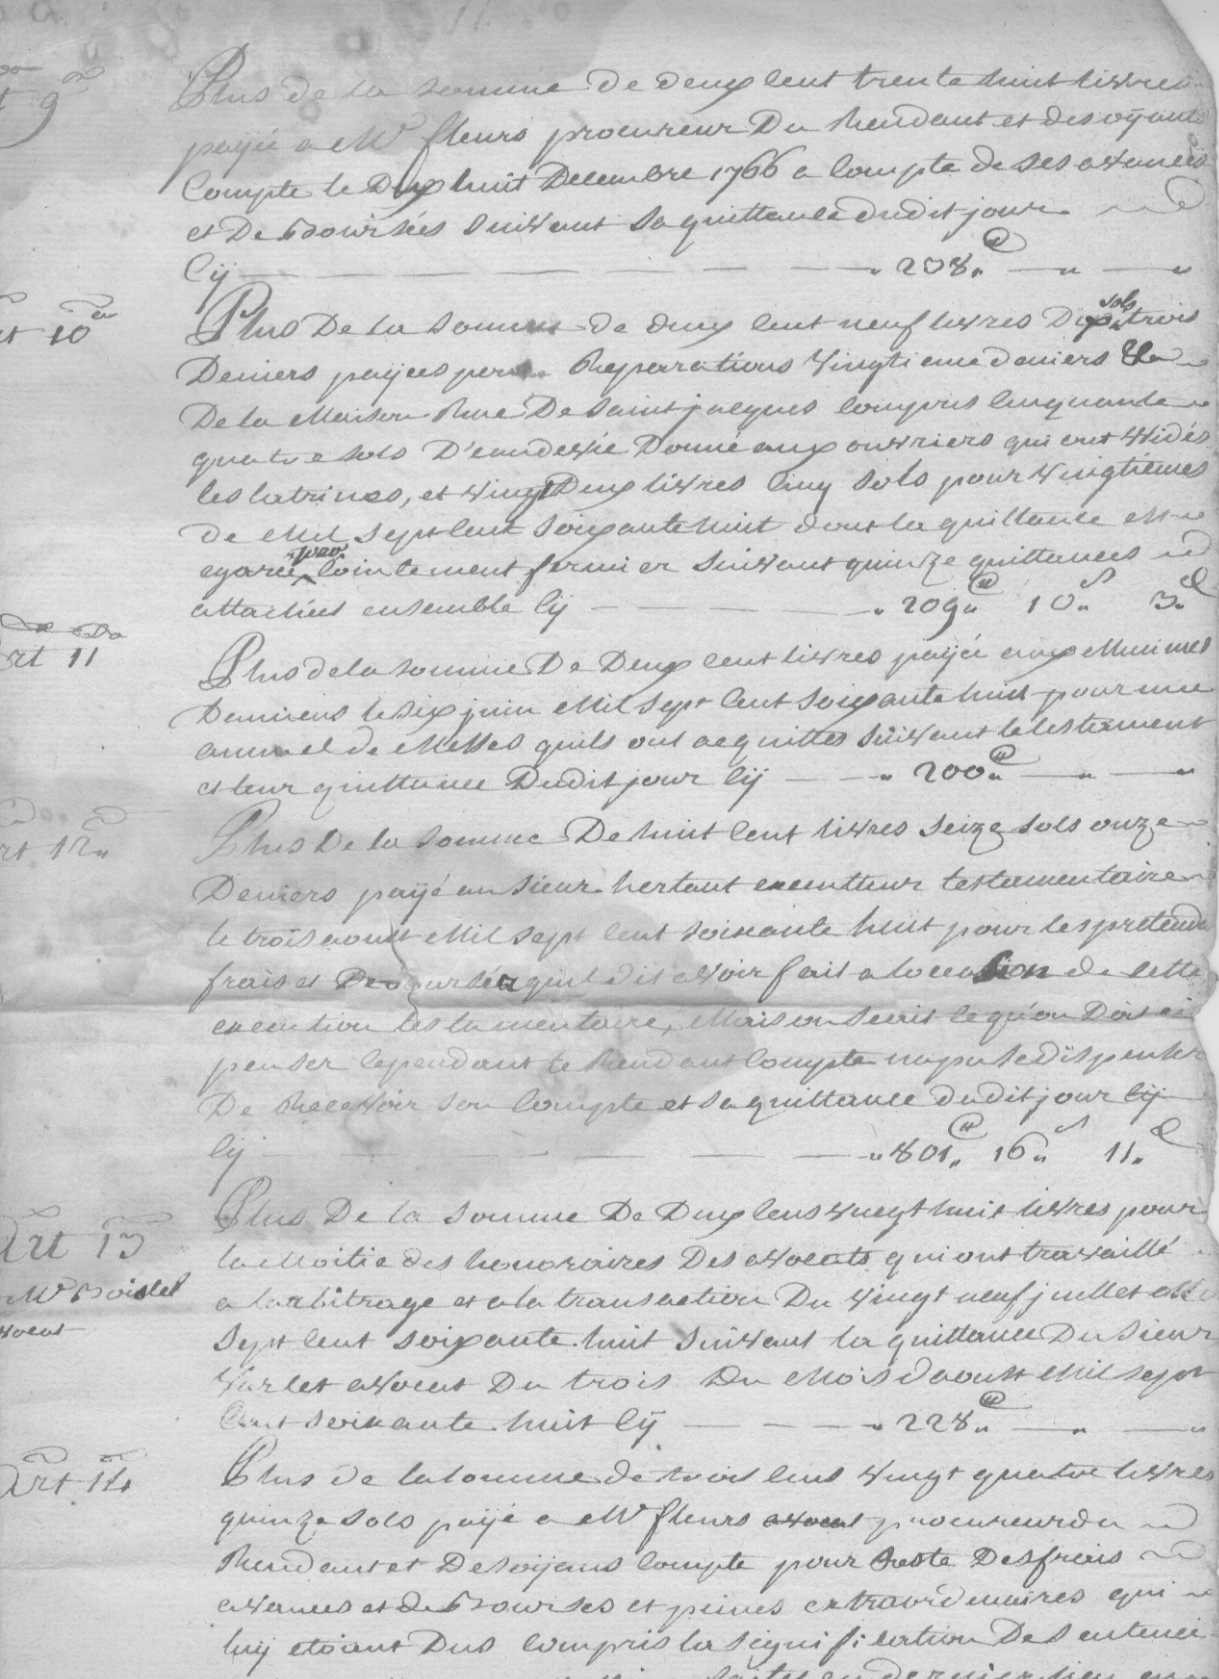 Art 9
Plus de la somme de deux cent trente huit livres
payée a Mr fleurs procureur Du Rendant et des oÿants
Compte le Dix huit Decembre 1766 a compte de ses avances
et Deboursées suivant sa quittance dudit jour
Cÿ — 208.# — " — "
Art 10
Plus De la Somme de deux cent neuf livres Dix sols trois
Deniers payées pour Reparations vingtieme deniers &a
De la Maison Rue De Saint jacques compris cinquante
quatre sols D'eaudevie Donné aux ouvriers qui ont vidés
les latrines, et vingt Deux livres cinq sols pour vingtiemes
de Mil sept cent soixante huit dont la quittance est
egarée par lointement fermier suivant quinze quittances
attachées ensemble Cÿ — 209.# 10.s 3.d
Art 11
Plus de la somme De Deux cent livres payée aux Minimes
Damiens le six juin Mil sept cent soixante huit pour une
annuel de Messes quils ont acquittes suivant le testament
et leur quittance Dudit jour Cÿ — 200.# — " — "
Art 12
Plus De la somme De huit cent livres seize sols onze
Deniers payé au Sieur hertaut executteur testamentaire
le trois aoust Mil sept cent soixante huit pour les pretendus
frais et Deboursés quil dit avoir fait a loccasion de cette
execution testamentaire, Mais on scait ce qu'on Doit en
penser cependant le Rendant compte na pu se dispenser
De Recevoir son compte et sa quittance dudit jour cÿ
Cÿ — 801.# 16.s 11.d
Art 13
Plus De la somme De Deux cens vingt huit livres pour
la Moitié des honoraires Des avocats qui ont travaillé
Mr Boistel
avocat
a larbitrage et a la transaction Du vingt neuf juillet Mil
sept cent soixante huit suivant la quittance Du Sieur
Varlet avocat Du trois Du Mois daoust Mil sept
Cent soixante huit Cÿ — 228.# — " — "
Art 14
Plus de la somme de trois cens vingt quatre livres
quinze sols payé a Mr fleurs avocat procureur du
Rendant et Des oÿans compte pour Reste Des frais
avances et deBourses et peines extraordinaires qui
luy etoient Dus compris la signification De Sentence